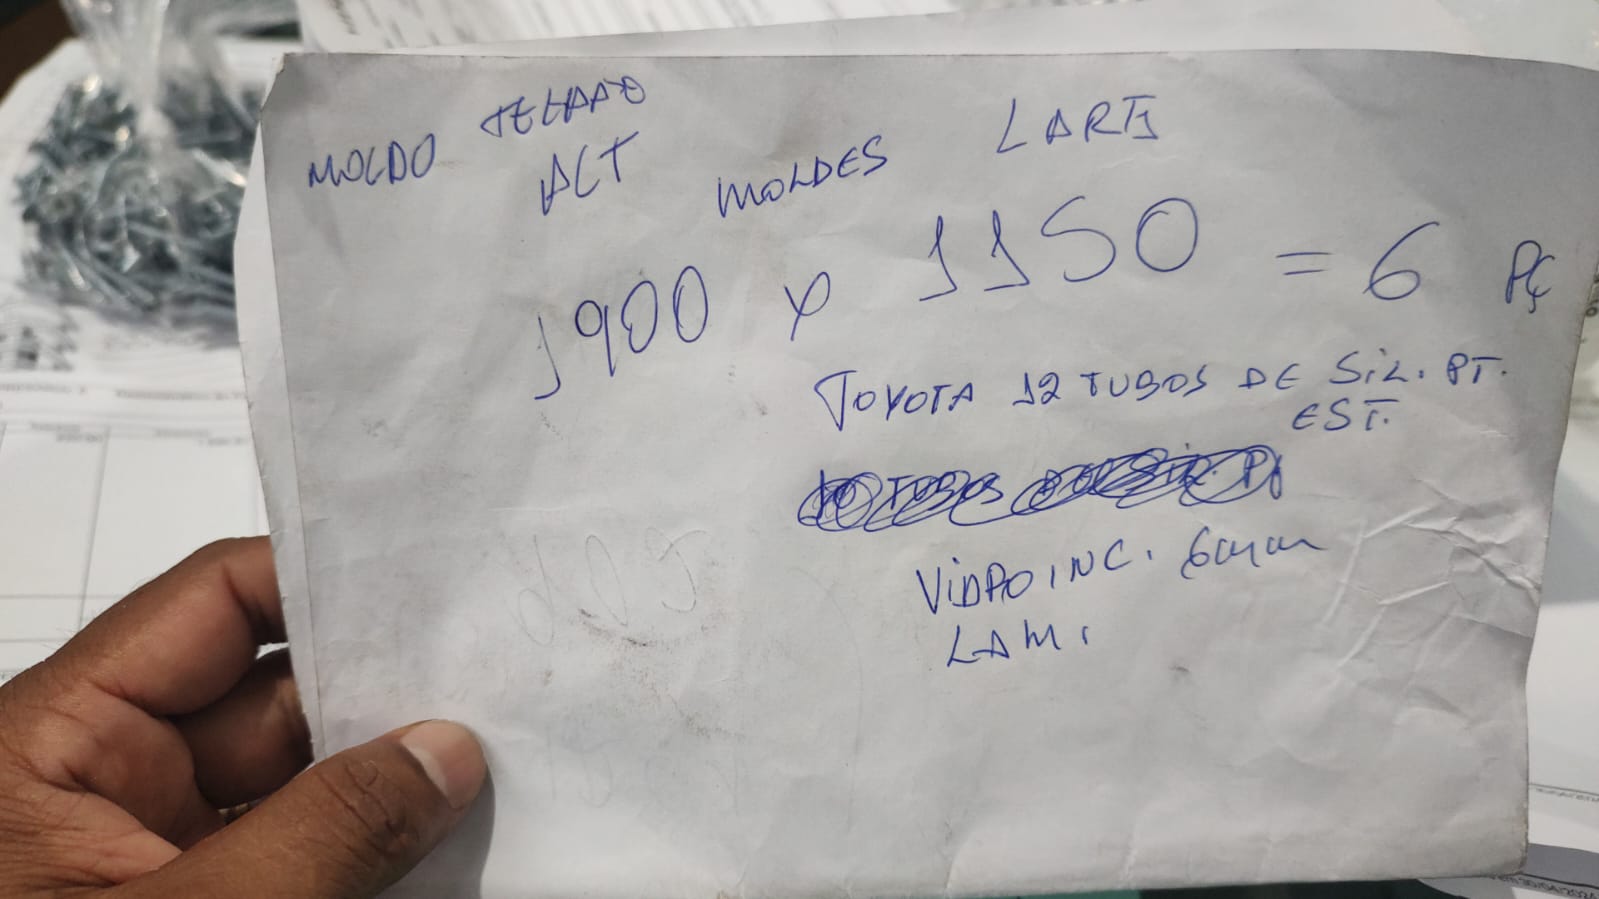 MOLDO TELHADO
ALT MOLDES LARG
1900 x 1150 = 6 PÇ
TOYOTA 12 TUBOS DE SIL. PT.
EST.
VIDRO INC. 6mm
LAM.
30/04/202